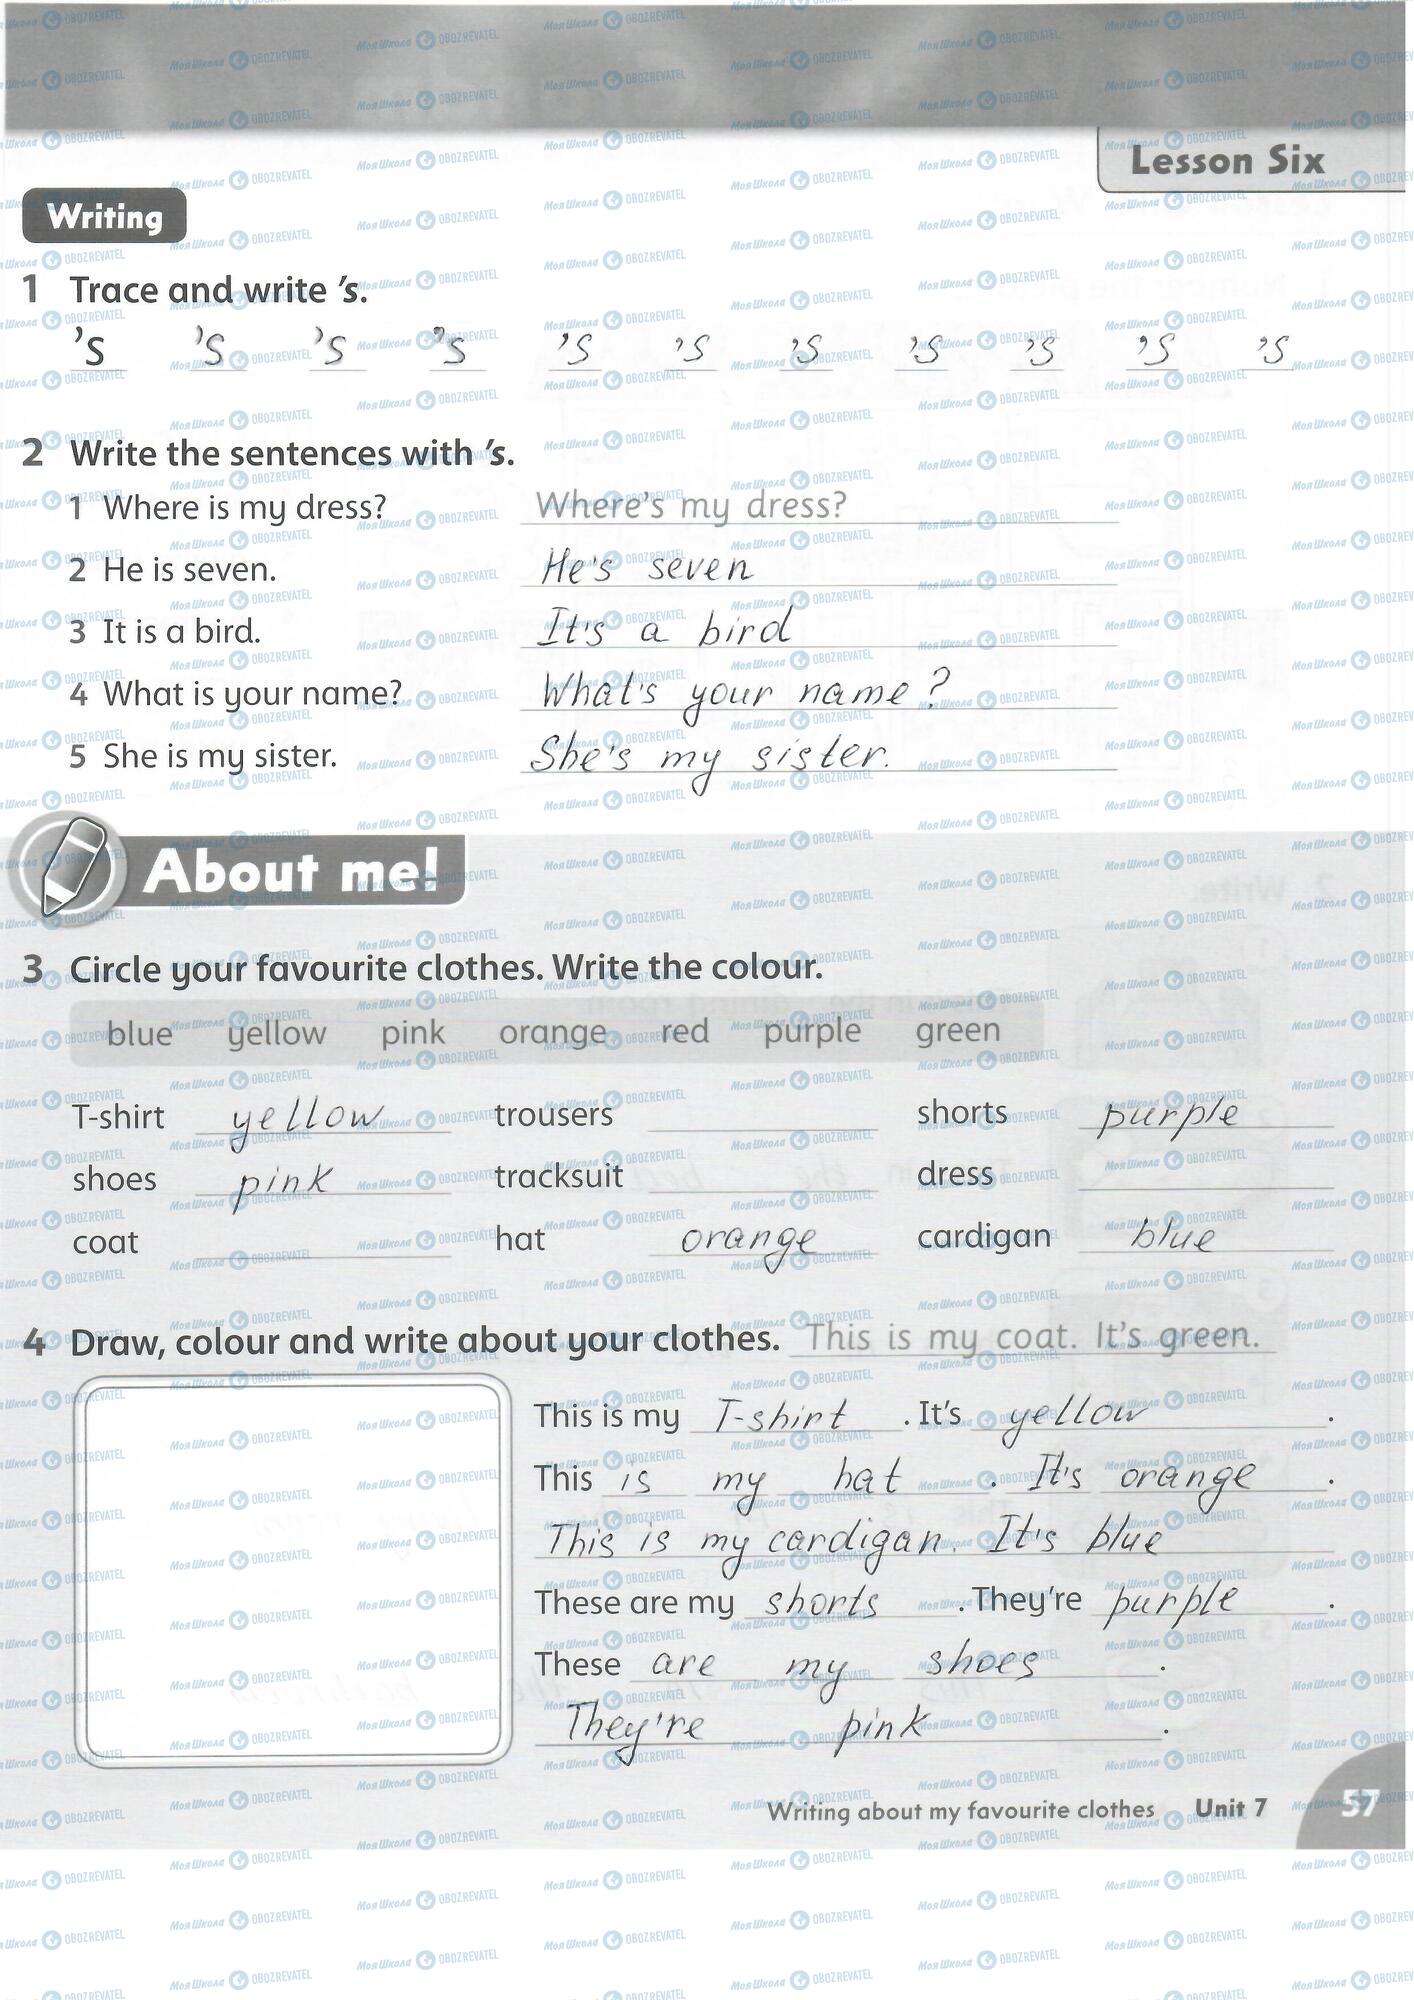 Lesson Six
Writing
1 Trace and write 's.
's 's 's 's 's 's 's 's 's 's 's
2 Write the sentences with 's.
1 Where is my dress? Where's my dress?
2 He is seven. He's seven
3 It is a bird. It's a bird
4 What is your name? What's your name?
5 She is my sister. She's my sister.
About me!
3 Circle your favourite clothes. Write the colour.
blue yellow pink orange red purple green
T-shirt yellow trousers shorts purple
shoes pink tracksuit dress
coat hat orange cardigan blue
4 Draw, colour and write about your clothes. This is my coat. It's green.
This is my T-shirt. It's yellow.
This is my hat. It's orange.
This is my cardigan. It's blue
These are my shorts. They're purple.
These are my shoes.
They're pink.
Writing about my favourite clothes Unit 7 57
МояШкола OBOZREVATEL